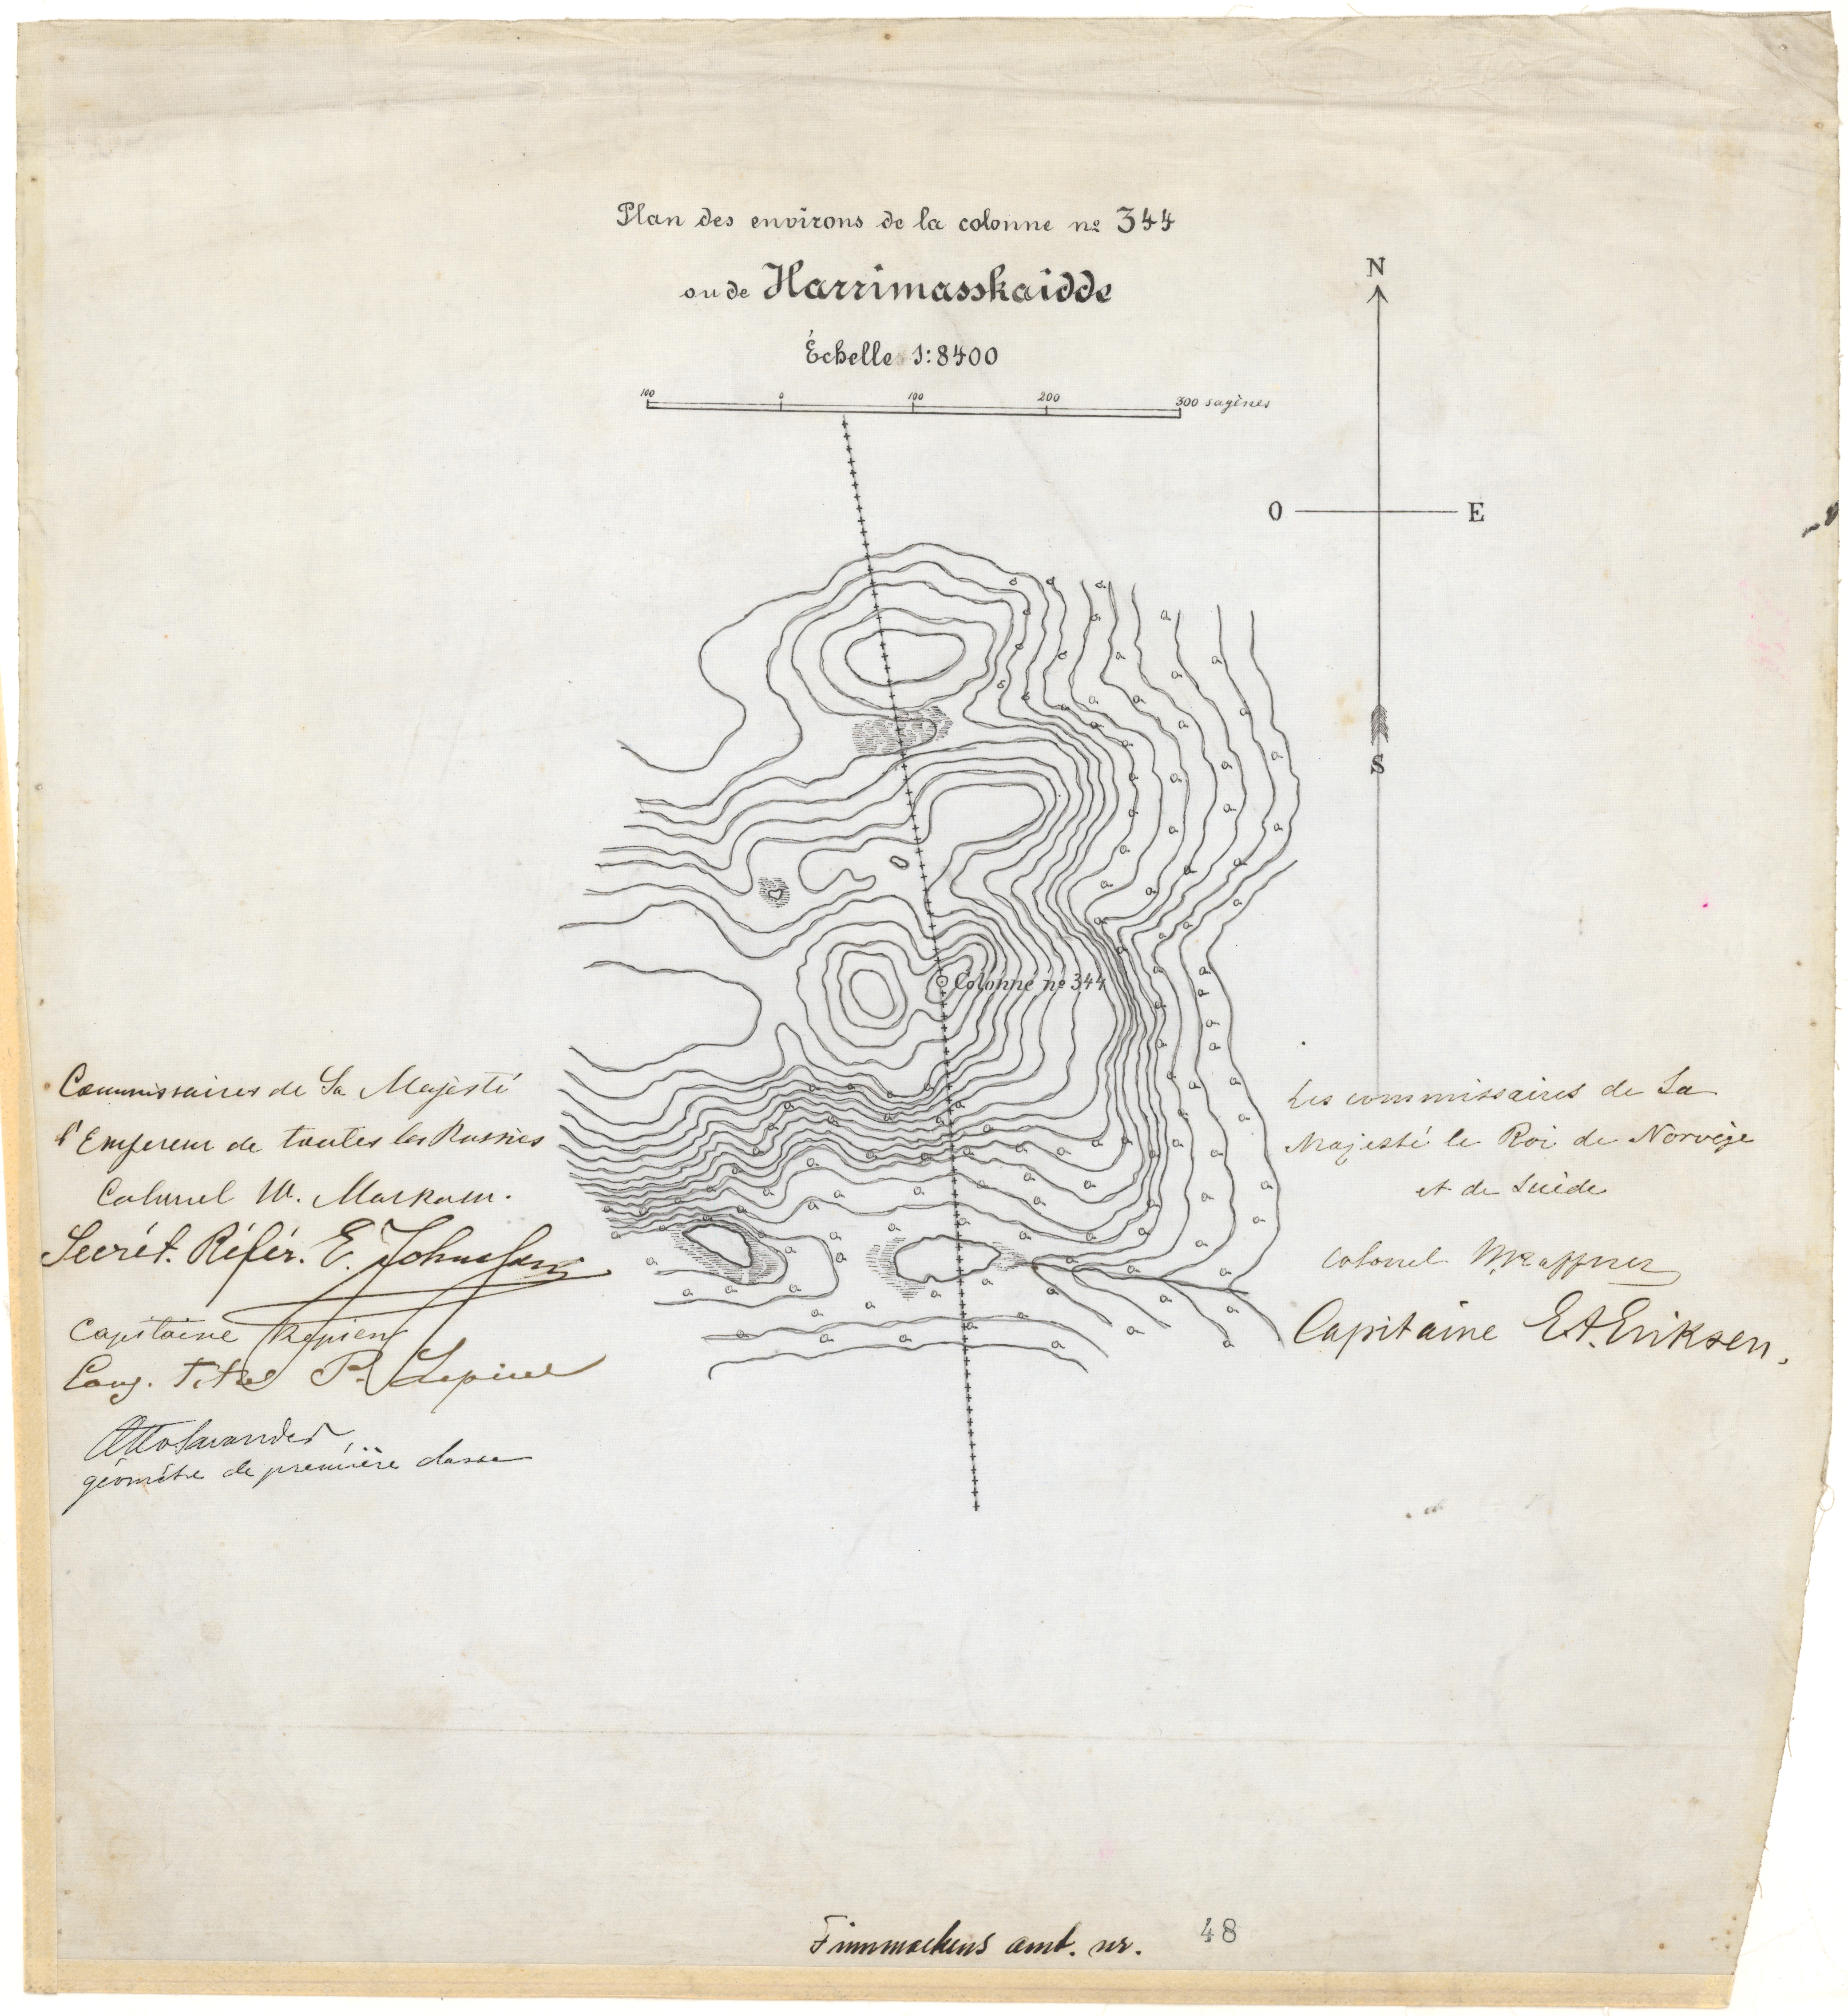 Plan des environs de la colonne nº 344
ou de Harrimasskaidde
Échelle 1:8400
100 0 100 200 300 sagènes
N
O E
S
Colonne nº 344
a
Commissaires de Sa Majesté
l'Empereur de toutes les Russies
Colonel W.
Secrét. Référ. E.
Capitaine
P.
Otto
géomètre de première classe
Les commissaires de Sa
Majesté le Roi de Norvège
et de Suède
Colonel
Capitaine E.A. Eriksen.
Finmarkens amt. nr. 48